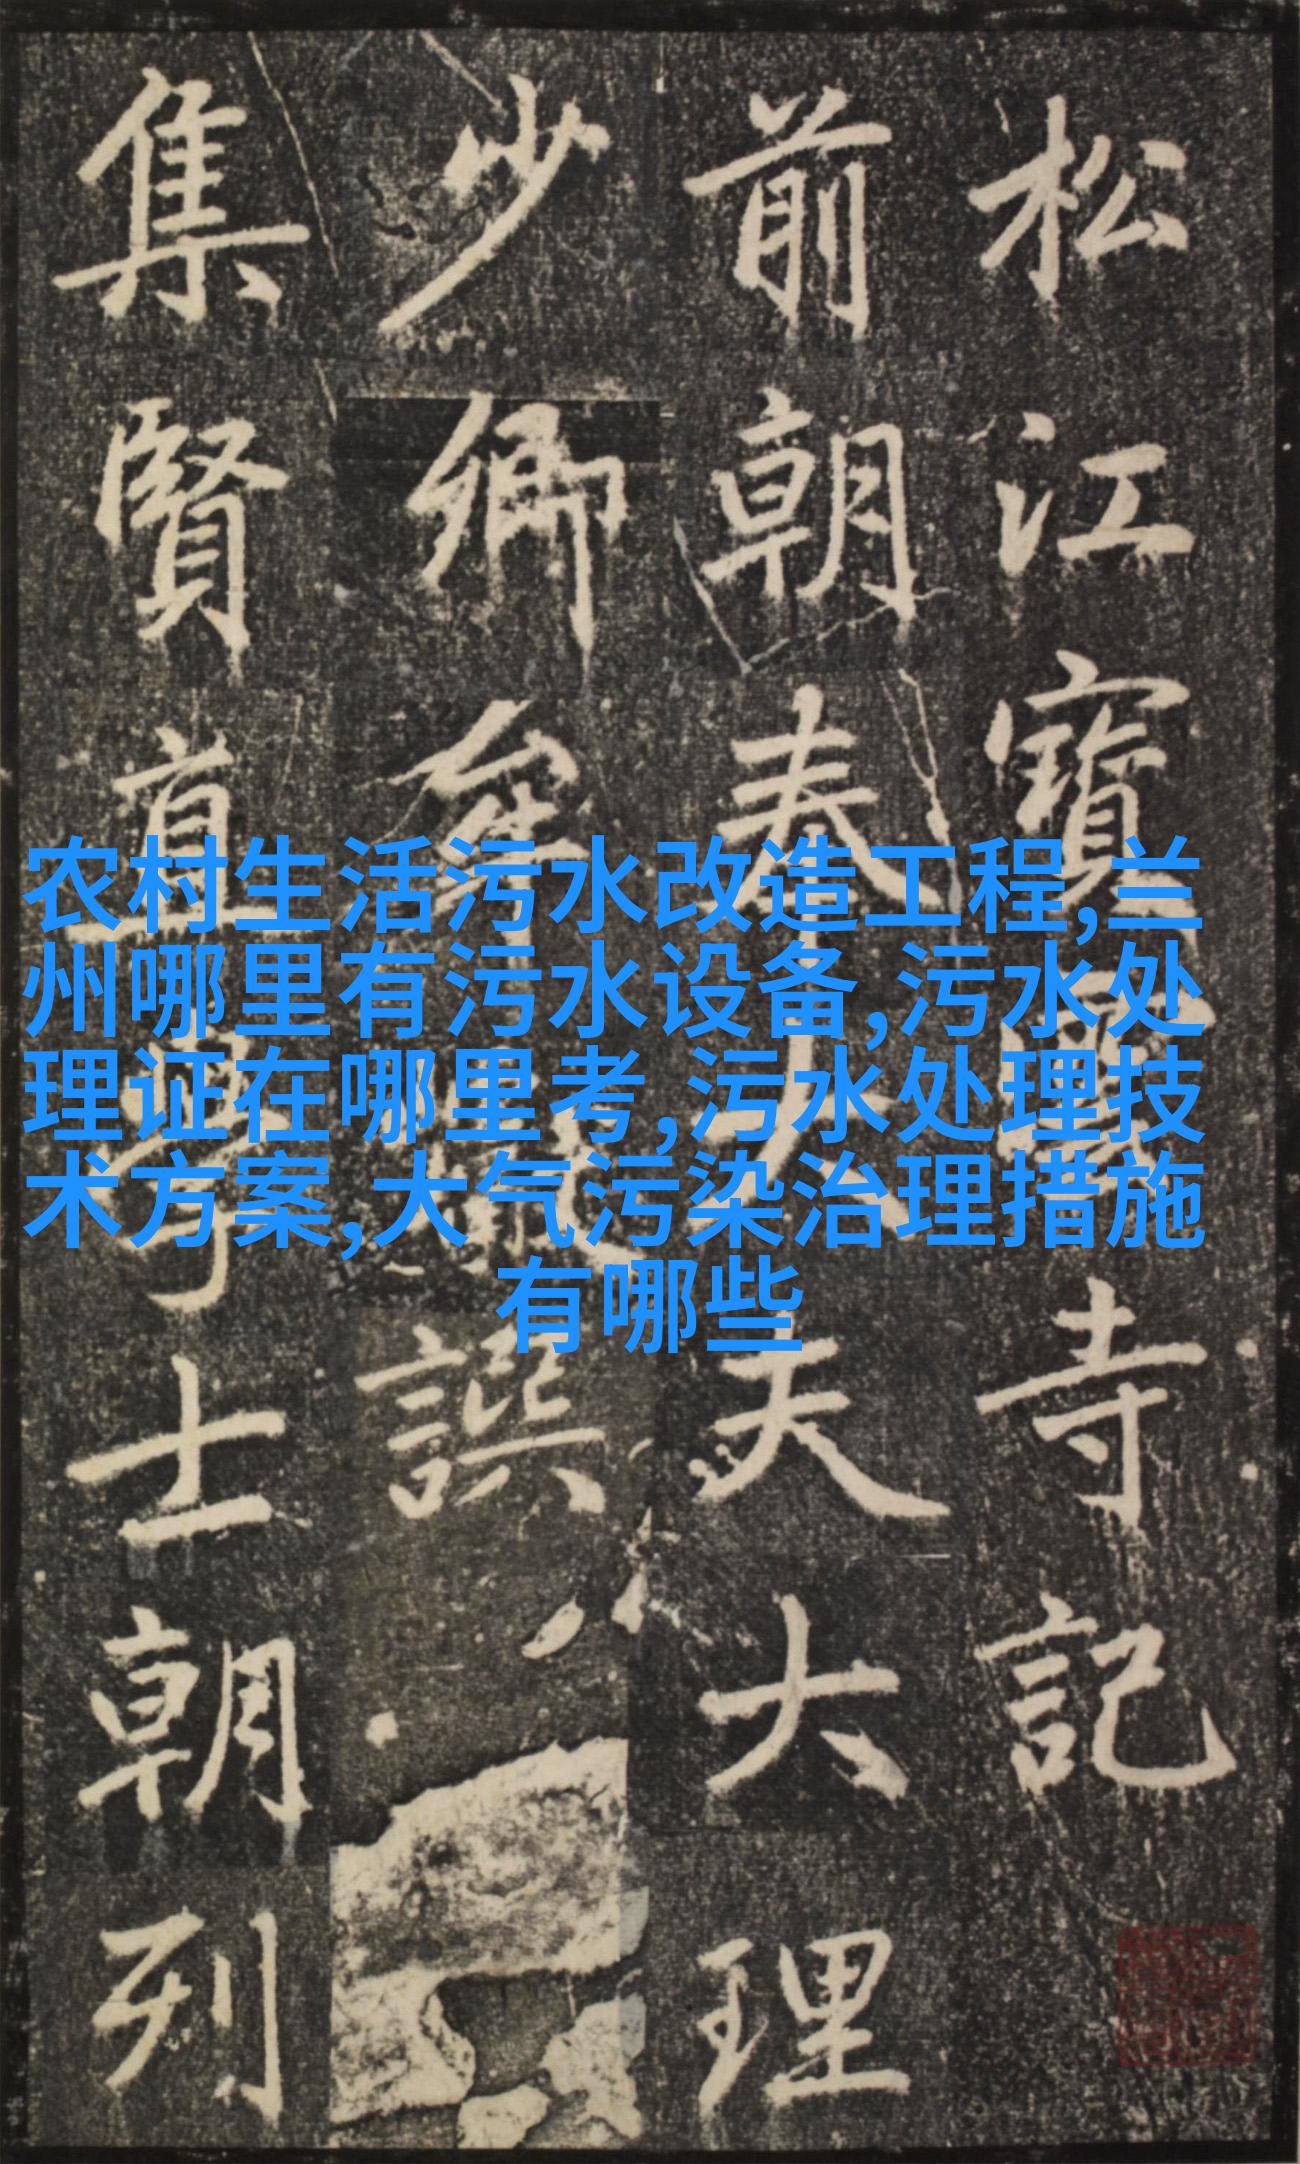 松江寶雲寺記
前朝奉大夫大理
少卿牟巘譔
集賢直學士朝列
农村生活污水改造工程,兰
州哪里有污水设备,污水处
理证在哪里考,污水处理技
术方案,大气污染治理措施
有哪些